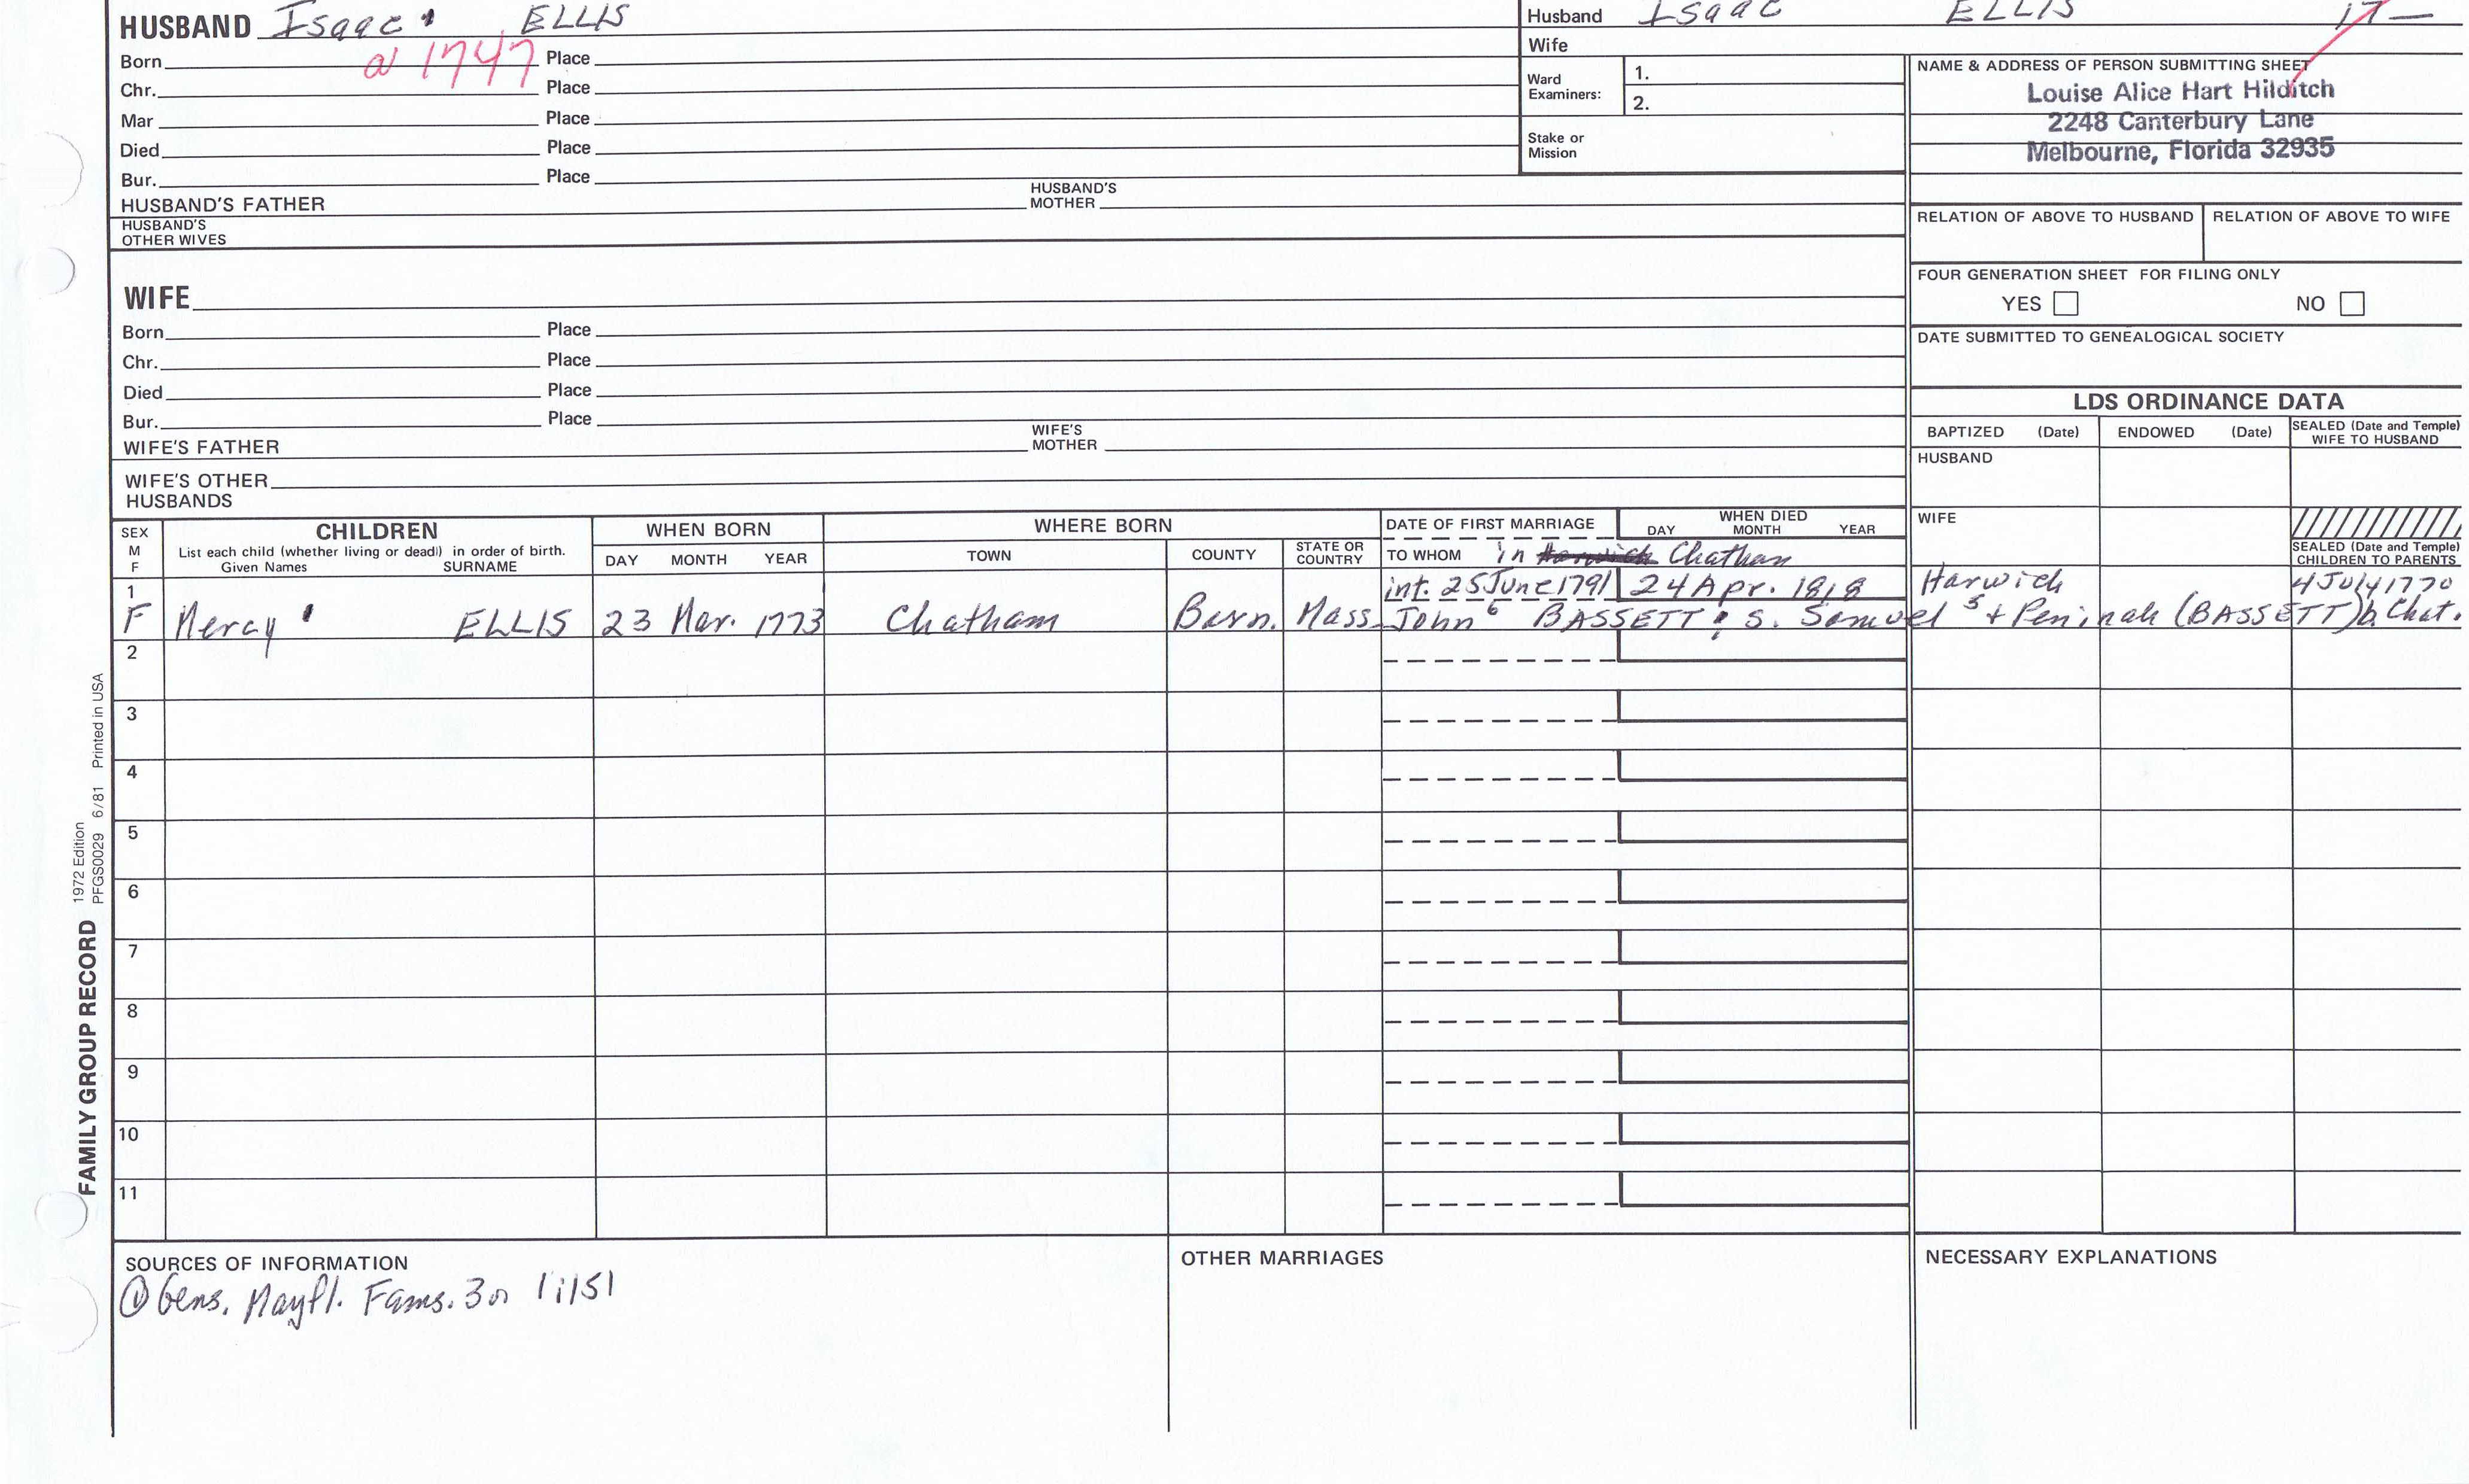 HUSBAND Isaac ELLIS
Born a 1747 Place
Chr. Place
Mar Place
Died Place
Bur. Place
HUSBAND'S FATHER HUSBAND'S MOTHER
HUSBAND'S OTHER WIVES
Husband Isaac ELLIS 17—
Wife
Ward Examiners: 1.
2.
Stake or Mission
NAME & ADDRESS OF PERSON SUBMITTING SHEET
Louise Alice Hart Hilditch
2248 Canterbury Lane
Melbourne, Florida 32935
RELATION OF ABOVE TO HUSBAND RELATION OF ABOVE TO WIFE
FOUR GENERATION SHEET FOR FILING ONLY
YES NO
DATE SUBMITTED TO GENEALOGICAL SOCIETY
WIFE
Born Place
Chr. Place
Died Place
Bur. Place
WIFE'S FATHER WIFE'S MOTHER
WIFE'S OTHER HUSBANDS
LDS ORDINANCE DATA
BAPTIZED (Date) ENDOWED (Date) SEALED (Date and Temple) WIFE TO HUSBAND
HUSBAND
WIFE
SEALED (Date and Temple) CHILDREN TO PARENTS
SEX M F
CHILDREN
List each child (whether living or dead) in order of birth.
Given Names SURNAME
WHEN BORN
DAY MONTH YEAR
WHERE BORN
TOWN COUNTY STATE OR COUNTRY
DATE OF FIRST MARRIAGE
TO WHOM in Harwich Chatham
WHEN DIED
DAY MONTH YEAR
1 int. 25 June 1791 24 Apr. 1818 Harwich 4 July 1770
F Mercy ELLIS 23 Mar. 1773 Chatham Barn. Mass. John 6 BASSETT; s. Samuel 5 + Peninah (BASSETT) b. Chat.
2
3
4
5
6
7
8
9
10
11
SOURCES OF INFORMATION
① Gens. Mayfl. Fams. 3 1:151
OTHER MARRIAGES
NECESSARY EXPLANATIONS
FAMILY GROUP RECORD 1972 Edition
PFGS0029 6/81 Printed in USA